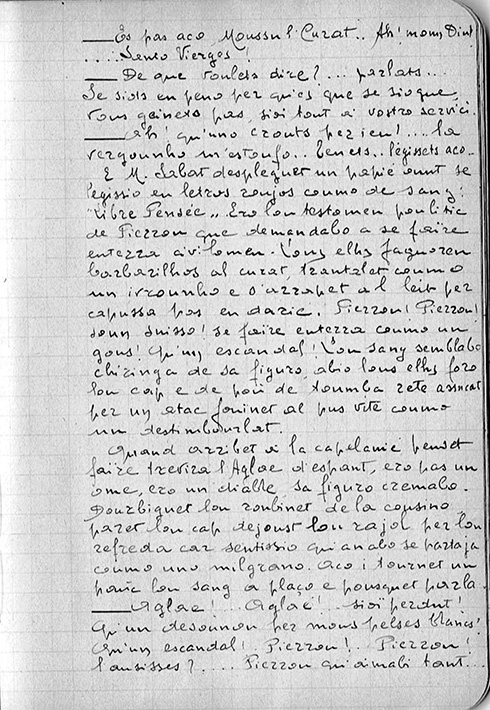 — Es pas aco Moussu l'Curat.. Ah! moun Diu!
..... Sento Vierges!
— De que voulets dire?.... parlats...
Se siots en peno per quicos que se sioque,
vous geinets pas, sioi tout a vostro servici.
— Ah! qu'uno crouts per ieu!.... la
vergounho m'estoufo.. Tenets.. legissets aco..
E M. Labat despleguet un papié ount se
legissio en letros roujos coumo de sang:
"Libre Pensée". Ero lou testomen poulitic
de Pierrou que demandabo a se faire
enterra civilomen. Lous elhs faguoren
barbarilhos al curat, trantalet coumo
un ivrounho e s'arrapet al leit per
capussa pas en darie. Pierrou! Pierrou!
soun suisso! se faire enterra coumo un
gous! Qu'un escandal! Lou sang semblabo
chiringa de sa figuro, abio lous elhs foro
lou cap e de poù de toumba rete
per un atac fouinet al pus vite coumo
un destimbourlat.
Quand arribet a la capelanie penset
faire trevira l'Aglae d'espant, ero pas un
ome, ero un diable, sa figuro cremabo.
Dourbiguet lou roubinet de la cousino
paret lou cap dejoust lou rajol per lou
refreda car sentissio qu'anabo se partaja
coumo uno milgrano. Aco i tournet un
pauc lou sang a plaço e pousquet parla.
— Aglae!.... Aglae!.. sioi perdut!
Qu'un desounou per mous pelses blancs!
Qu'un escandal! Pierrou!.. Pierrou!
l'ausisses?.... Pierrou qu'aimabi tant....